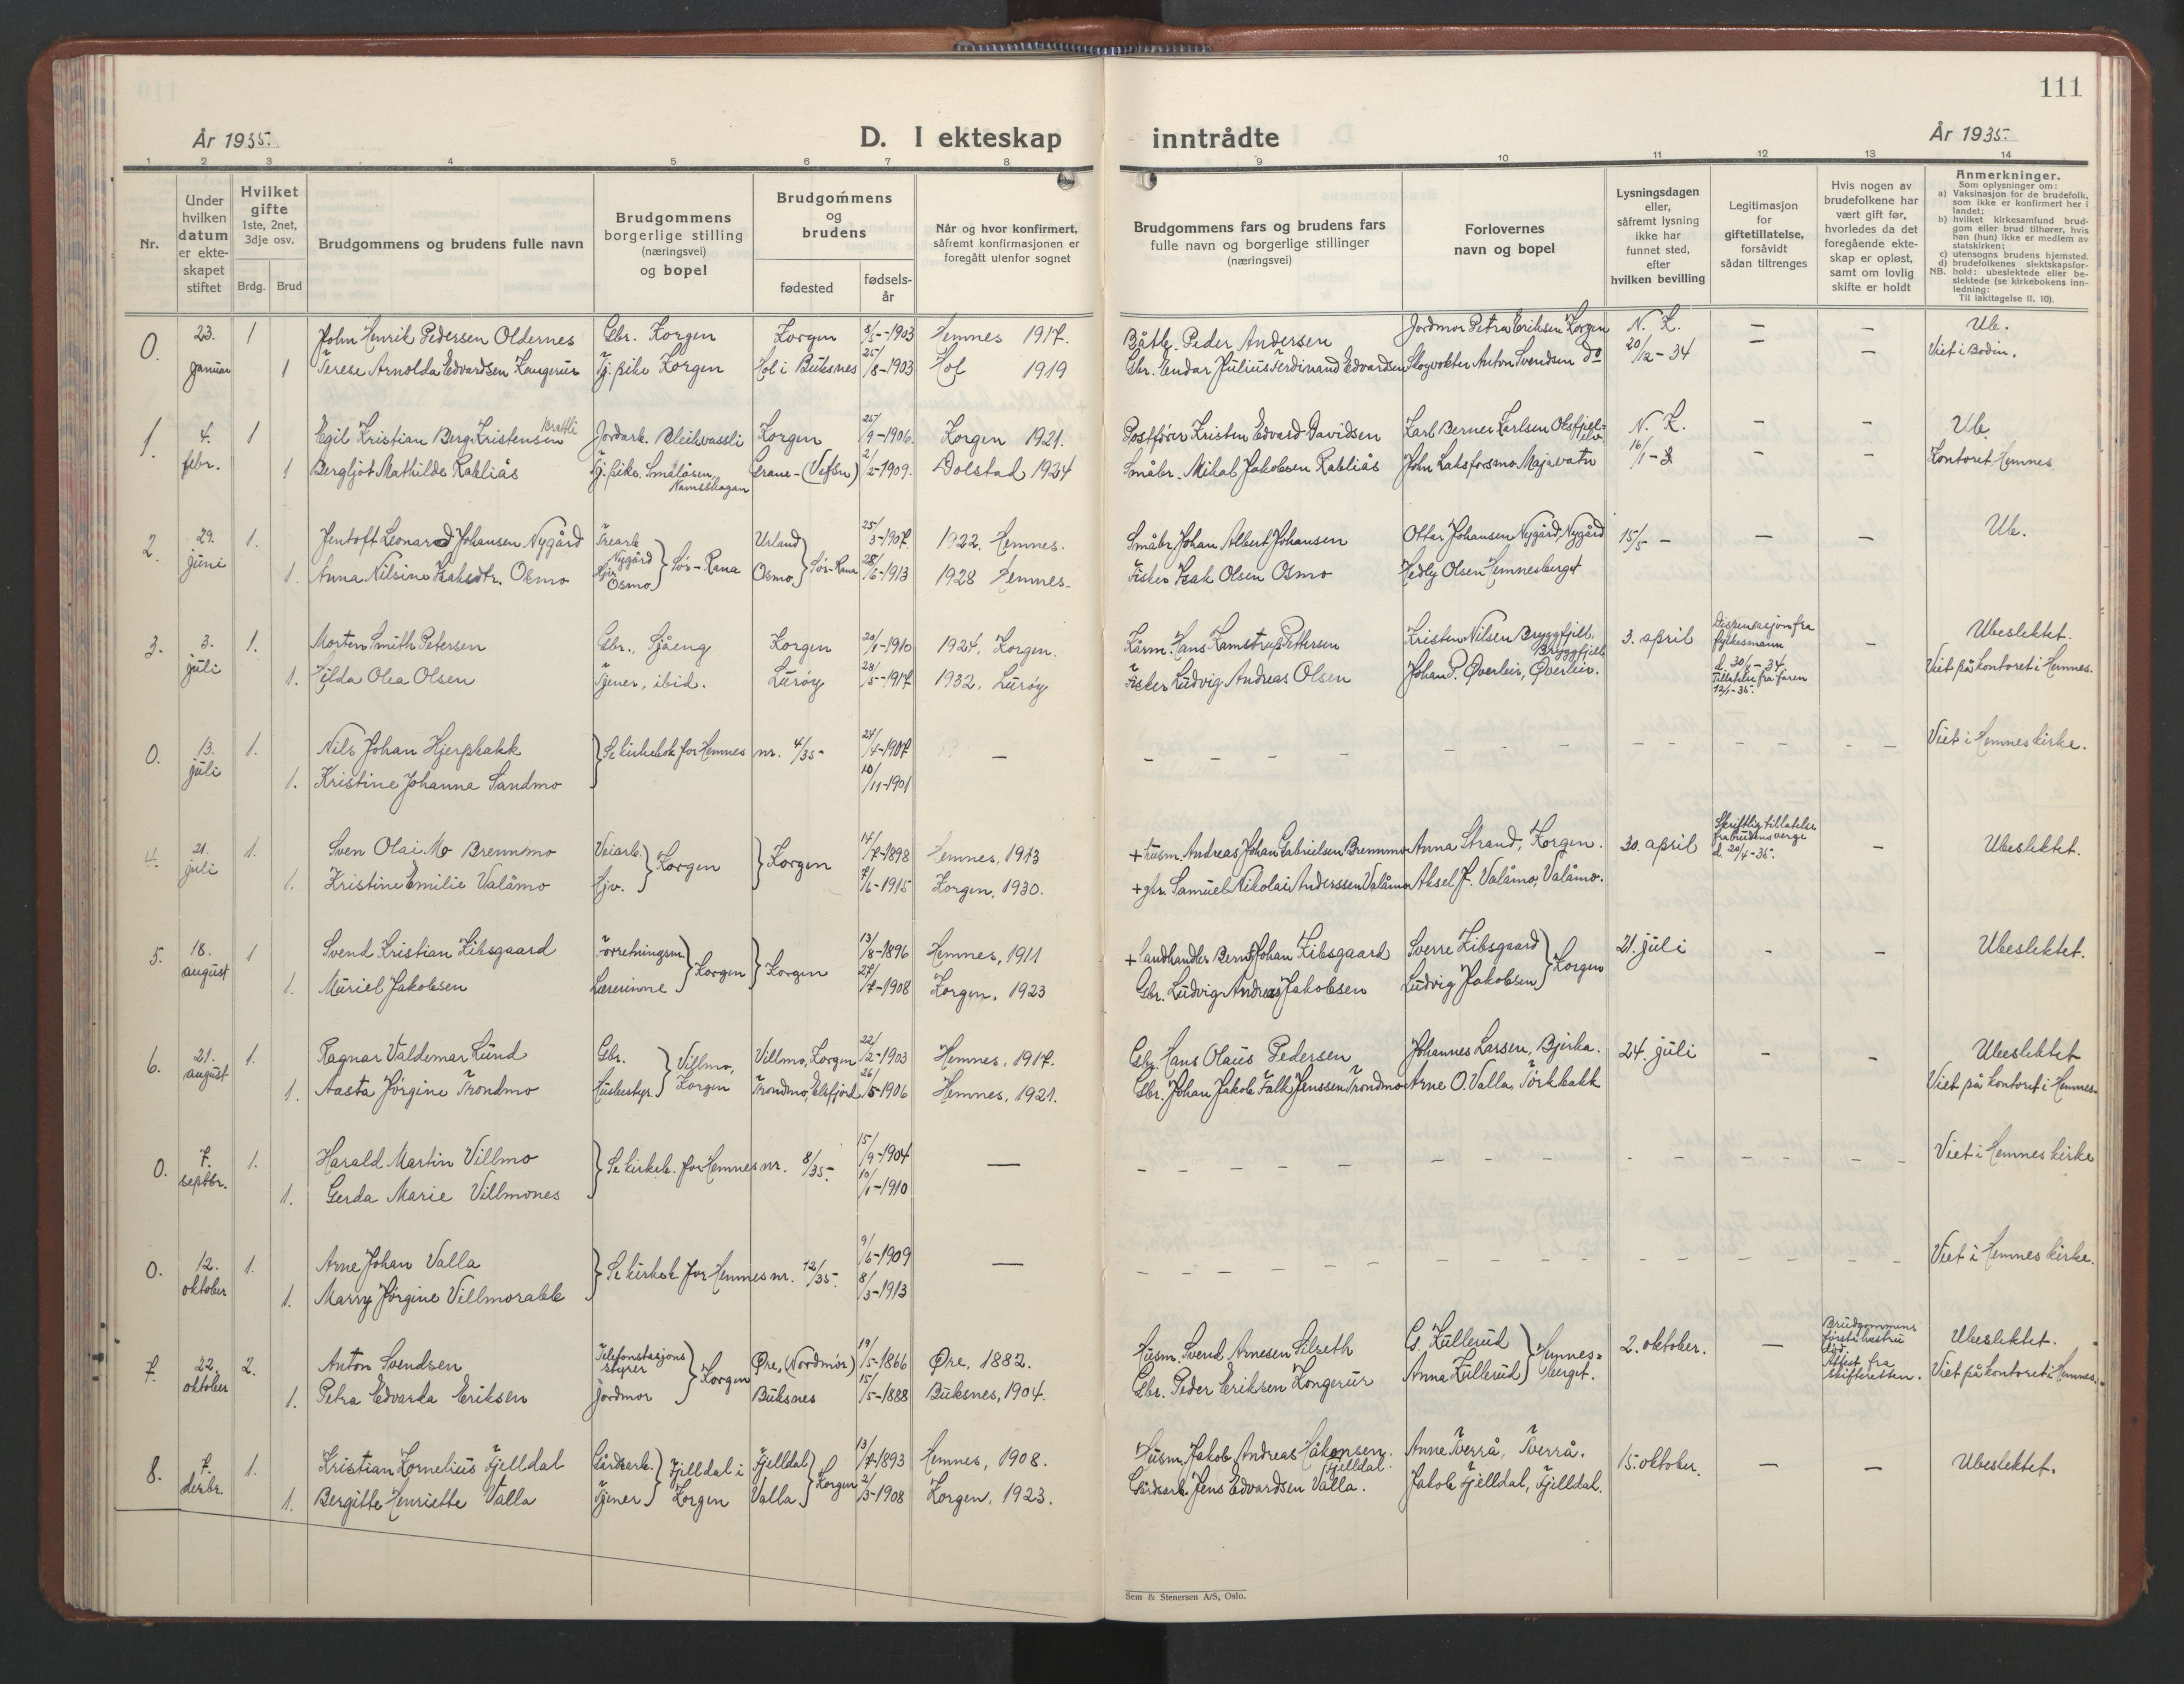 111
År 1935.
D. I ekteskap inntrådte
År 1935
1 2 3 4 5 6 7 8 9 10 11 12 13 14
Nr.
Under hvilken datum er ekte-skapet stiftet
Hvilket gifte
1ste, 2net, 3dje osv.
Brdg. Brud
Brudgommens og brudens fulle navn
Brudgommens borgerlige stilling (næringsvei) og bopel
Brudgommens og brudens
fødested
fødsels-år
Når og hvor konfirmert, såfremt konfirmasjonen er foregått utenfor sognet
Brudgommens fars og brudens fars fulle navn og borgerlige stillinger (næringsvei)
Forlovernes navn og bopel
Lysningsdagen eller, såfremt lysning ikke har funnet sted, efter hvilken bevilling
Legitimasjon for giftetillatelse, forsåvidt sådan tiltrenges
Hvis nogen av brudefolkene har vært gift før, hvorledes da det foregående ekte-skap er opløst, samt om lovlig skifte er holdt
Anmerkninger.
Som oplysninger om:
a) Vaksinasjon for de brudefolk, som ikke er konfirmert her i landet;
b) hvilket kirkesamfund brud-gom eller brud tilhører, hvis han (hun) ikke er medlem av statskirken;
c) utensogns brudens hjemsted.
d) brudefolkenes slektskapsfor-hold: ubeslektede eller be-slektede (se kirkebokens inn-ledning:
NB. Til iakttagelse II. 10).
0. 23. januar 1 John Henrik Pedersen Oldernes Gbr. Korgen Korgen 8/5-1903 Hemnes 1917. Båtb. Peder Andersen Jordmor Petra Eriksen Korgen N. K. — — Ub.
1 Terese Arnolda Edvardsen Kongerur Tj. pike Korgen Hol i Buksnes 25/8-1903 Hol 1919 Gbr. Endar Julius Ferdinand Edvardsen Skogvokter Anton Svendsen do 20/12-34 — — Viet i Bodin.
1. 4. febr. 1 Egil Kristian Berg Kristensen Brattli Jordarb. Bleikvassli Korgen 25/9-1906. Korgen 1921. Postfører Kristen Edvard Davidsen Karl Berner Karlsen N. K. — — Ub.
1 Bergljot Mathilde Kabliås Tj. pike. Smålåsen, Namsskogan Grane-(Vefsn) 2/2-1909. Dolstad 1924 Småbr. Mikal Jakobsen Kabliås John Laksforsmo Majavatn 16/1- — — Kontoret Hemnes
2. 29. juni 1. Jentoft Leonard Johansen Nygård Trearb. Nygård } Sør-Rana Urland } Sør-Rana 25/3-1907. 1922. Hemnes. Småbr. Johan Albert Johansen Ottar Johansen Nygård, Nygård 15/5 — — — Ub.
1. Anna Nilsine Isaksdtr. Osmo Hjv. Osmo Osmo 28/6-1913 1928 Hemnes. Fisker Isak Olsen Osmo Hedly Olsen Hemnesberget
3. 3. juli 1. Morten Smith Petersen Gbr., Sjåeng Korgen 20/1-1910 1924. Korgen. Kårm. Hans Kamstrup Pettersen Kristen Nilsen Bryggfjell, Bryggfjell 3. april Dispensasjon fra fylkesmann d. 30/1-34. Tillatelse fra faren 12/1-35. — Ubeslektet.
1. Hilda Olea Olsen Tjener, ibid. Lurøy 28/5-1917 1932. Lurøy Fisker Ludvig Andreas Olsen Johan P. Øverleir, Øverleir. Viet på kontoret i Hemnes.
0. 13. juli 1. Nils Johan Hjerpbakk } Se kirkebok for Hemnes nr. 4/35- 24/4-1907 — Viet i Hemnes kirke.
1. Kristine Johanna Sandmo 10/11-1901
4. 21. juli 1. Sven Olai Mo Brennmo Veiarb. } Korgen } Korgen 14/7-1898 Hemnes, 1913 + husm. Andreas Johan Gabrielsen Brennmo Anna Strand, Korgen. 30. april Skriftlig tillatelse fra brudens verge d. 20/4-35. — Ubeslektet.
1. Kristine Emilie Valåmo Hjv. 7/6-1915 Korgen, 1930. + gbr. Samuel Nikolai Anderssen Valåmo Aksel J. Valåmo, Valåmo.
5. 18. august 1 Svend Kristian Kibsgaard Forretningsm. } Korgen } Korgen 13/8-1896 Hemnes, 1911 + Landhandler Bernt Johan Kibsgaard Sverre Kibsgaard } Korgen 21. juli — — Ubeslektet.
1. Muriel Jakobsen Lærerinne 27/7-1908 Korgen. 1923 Gbr. Ludvig Andreas Jakobsen Ludvig Jakobsen
6. 21. august 1. Ragnar Valdemar Lund Gbr. } Villmo, Korgen Villmo, Korgen 22/2-1903 Hemnes, 1917. Gbr. Hans Olaus Pedersen Johannes Larsen, Bjerka. 24. juli — — Ubeslektet
1. Aasta Jørgine Trondmo Husbestyr. Trondmo, Elsfjord 26/5-1906 Hemnes, 1921. Gbr. Johan Jakob Falk Jenssen Trondmo Arne O. Valla Tørkbakk Viet på kontoret i Hemnes.
0. 7. septbr. 1. Harald Martin Villmo } Se kirkeb. for Hemnes nr. 8/35- 15/9-1904 — Viet i Hemnes kirke
1. Gerda Marie Villmones 10/1-1910
0. 12. oktober 1. Arne Johan Valla } Se kirkeb. for Hemnes nr. 12/35- 9/6-1909 — Viet i Hemnes kirke.
1. Marry Jørgine Villmorabb 8/3-1913
7. 22. oktober 2. Anton Svendsen Telefonstasjons styrer } Korgen Øre, (Nordmør) 19/5-1866 Øre, 1882. Husm. Svend Arnesen Silseth G. Kullerud } Hemnes= berget. 2. oktober. — Brudgommens første hustru død. Attest fra skifteretten. Ubeslektet.
1. Petra Edvarda Eriksen Jordmor Buksnes 15/5-1888 Buksnes, 1904. Gbr. Peder Eriksen Kongerur Anna Kullerud Viet på kontoret i Hemnes.
8. 7. desbr. 1. Kristian Kornelius Fjelldal Gårdsarb. } Fjelldal i Korgen Fjelldal } Korgen 13/7-1893 Hemnes, 1908. Husm. Jakob Andreas Håkonsen. Fjelldal. Anne Tverrå, Tverrå. 15. oktober. — — Ubeslektet.
1. Bergitte Henriette Valla Tjener Valla 2/3-1908 Korgen, 1923. Gårdsarb. Jens Edvardsen Valla. Jakob Fjelldal, Fjelldal.
Sem & Stenersen A/S, Oslo.